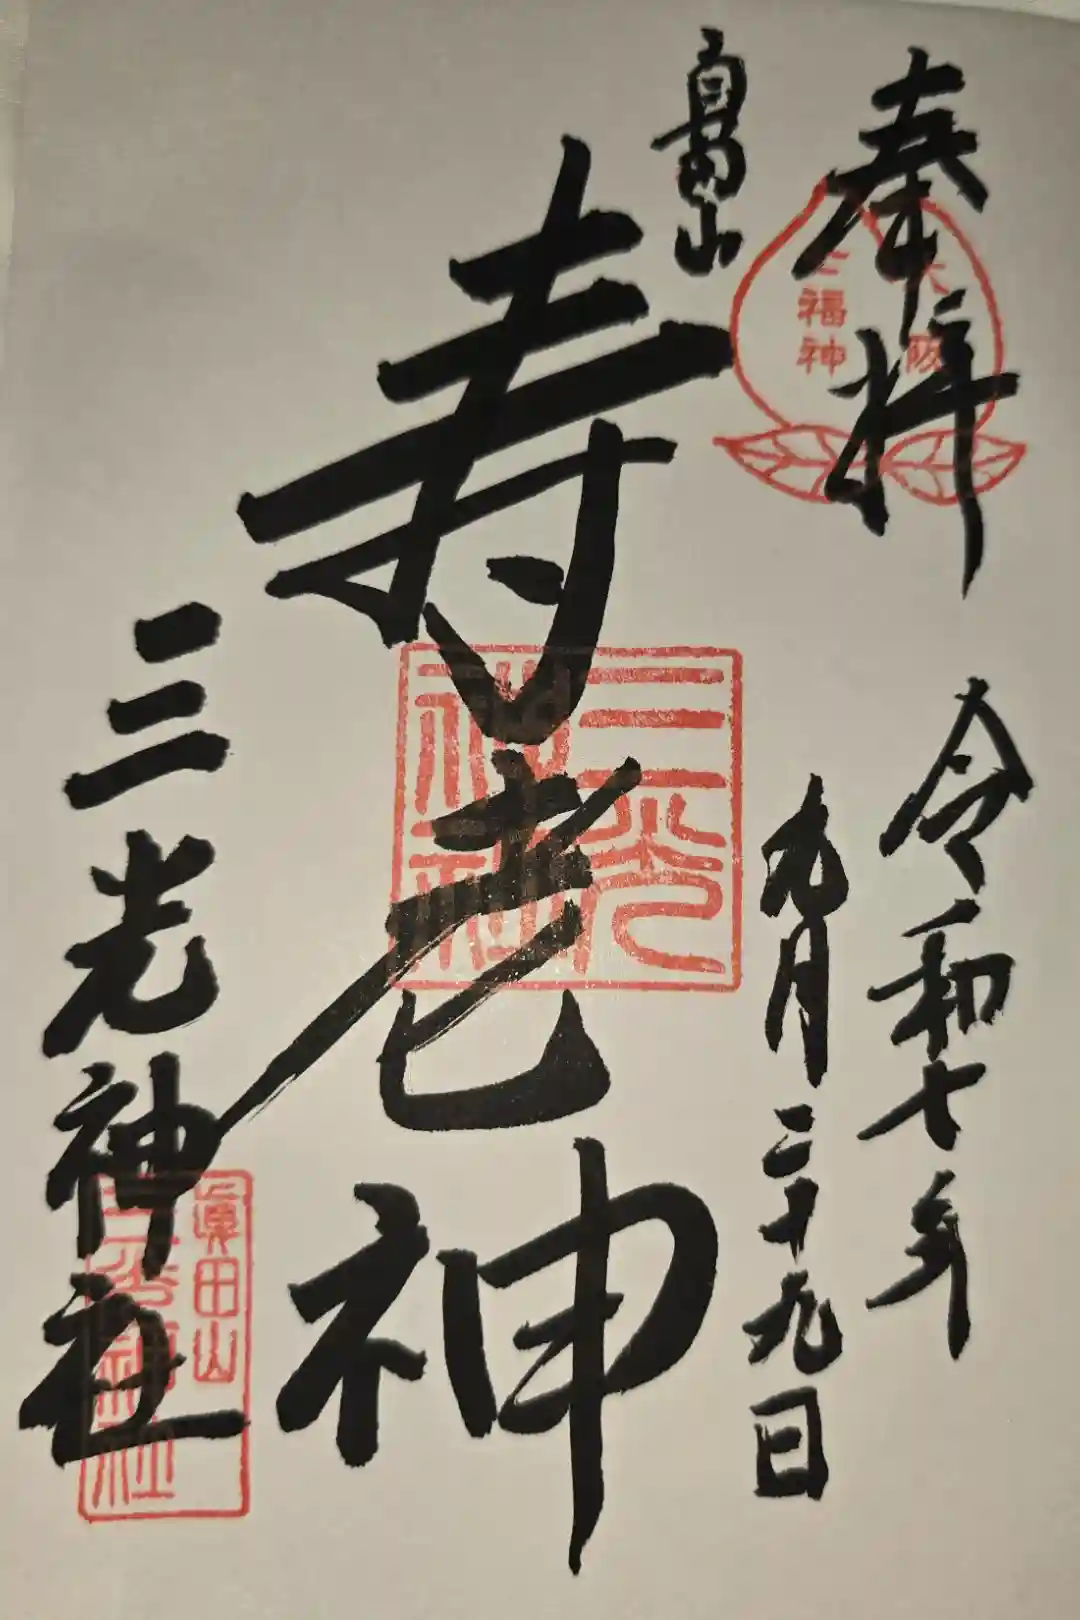 奉拝
大阪
七福神
令和七年
九月二十九日
真田山
寿老神
三光神社
三光神社
眞田山
三光神社